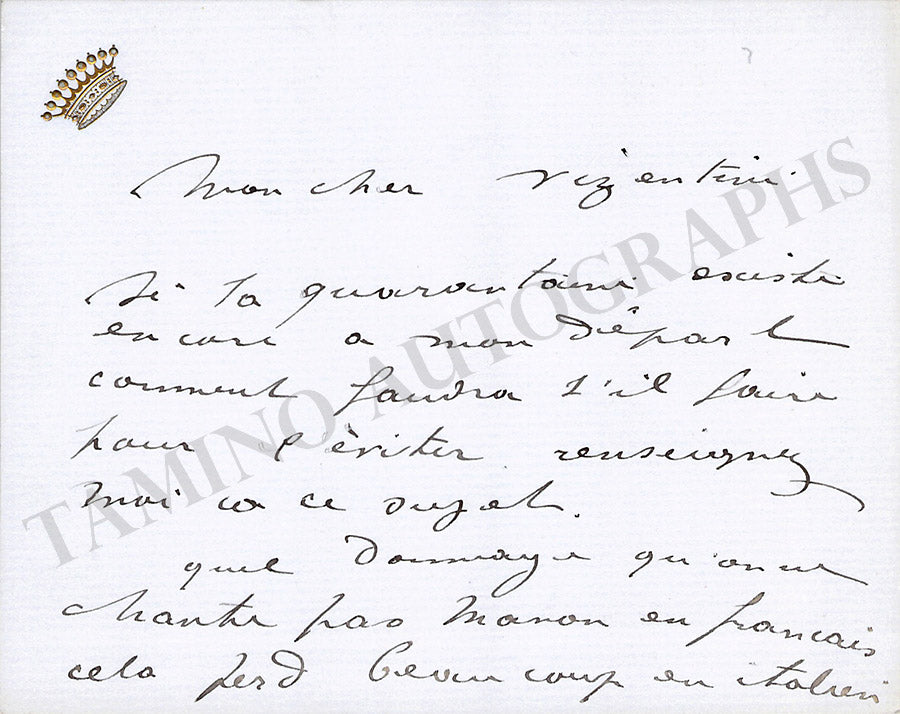 mon cher vizentini
si la quarantaine existe
encore a mon départ
comment faudra t'il faire
pour l'éviter renseignez
moi a ce sujet.
quel dommage qu'on ne
chante pas Manon en francais
cela perd beaucoup en italien
TAMINO AUTOGRAPHS